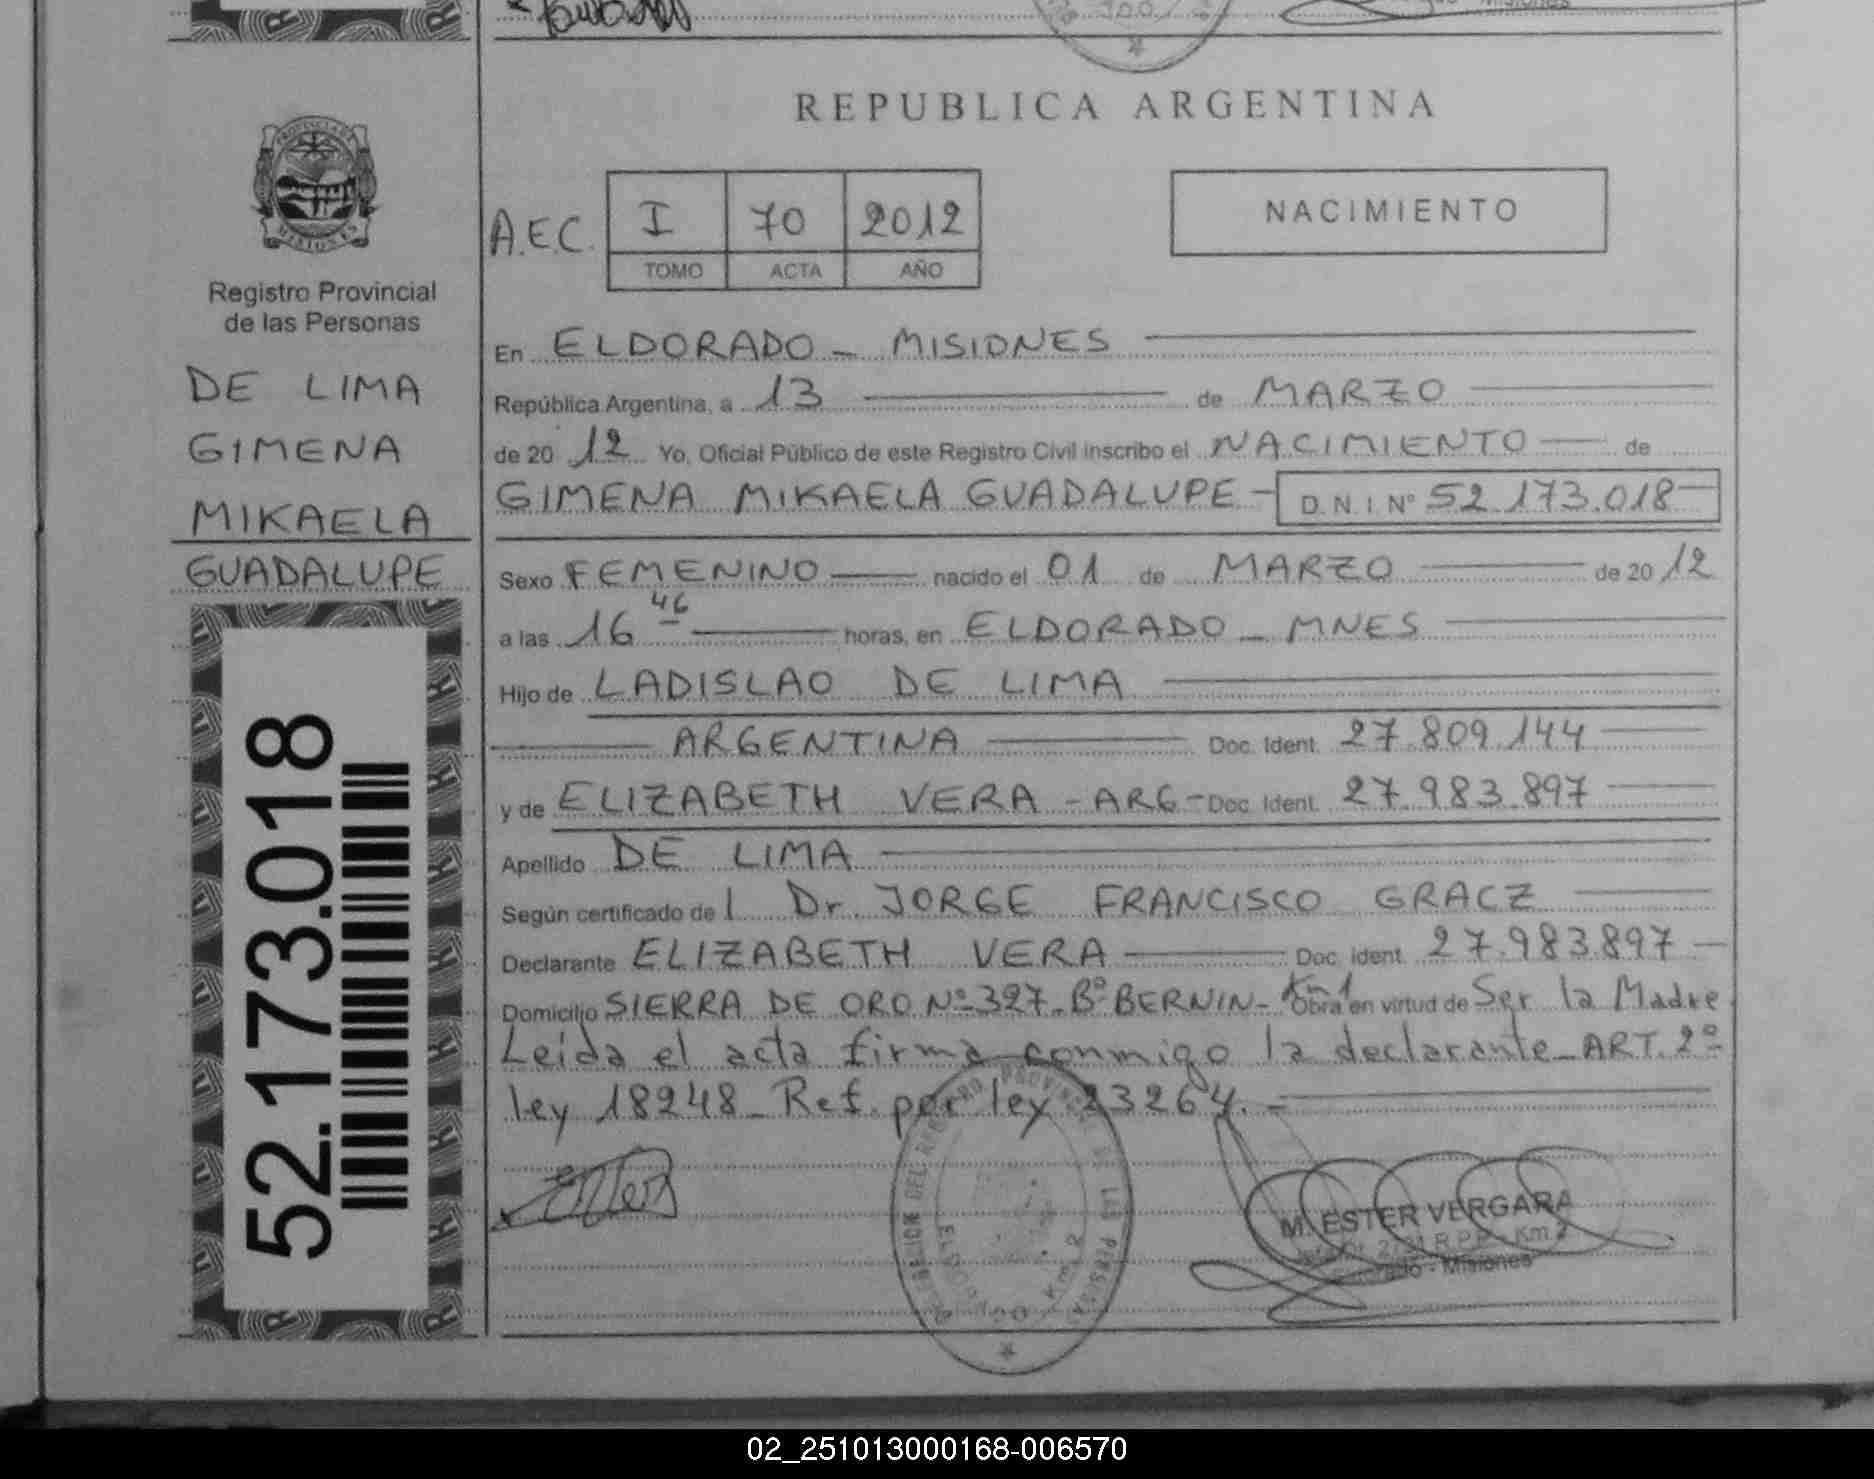 Misiones
REPUBLICA ARGENTINA
PROVINCIA DE
MISIONES
Registro Provincial
de las Personas
DE LIMA
GIMENA
MIKAELA
GUADALUPE
52.173.018
A.E.C. I 70 2012
TOMO ACTA AÑO
NACIMIENTO
En ELDORADO - MISIONES
República Argentina, a 13 de MARZO
de 20 12 Yo, Oficial Público de este Registro Civil inscribo el NACIMIENTO de
GIMENA MIKAELA GUADALUPE - D.N.I. Nº 52.173.018
Sexo FEMENINO nacido el 01 de MARZO de 20 12
a las 16 46 horas, en ELDORADO - MNES
Hijo de LADISLAO DE LIMA
ARGENTINA Doc. Ident. 27.809.144
y de ELIZABETH VERA - ARG - Doc. Ident. 27.983.897
Apellido DE LIMA
Según certificado de l Dr. JORGE FRANCISCO GRACZ
Declarante ELIZABETH VERA Doc. Ident. 27.983.897
Domicilio SIERRA DE ORO Nº 327 - Bº BERNIN - Km 1 Obra en virtud de Ser la Madre
Leida el acta firma conmigo la declarante - ART. 2º
ley 18248 - Ref. por ley 23264. -
M. ESTER VERGARA
R.P.P. - Km. 2
Eldorado - Misiones
DEL REGISTRO PROVINCIAL DE LAS PERSONAS
ELDORADO Km. 2
02_251013000168-006570